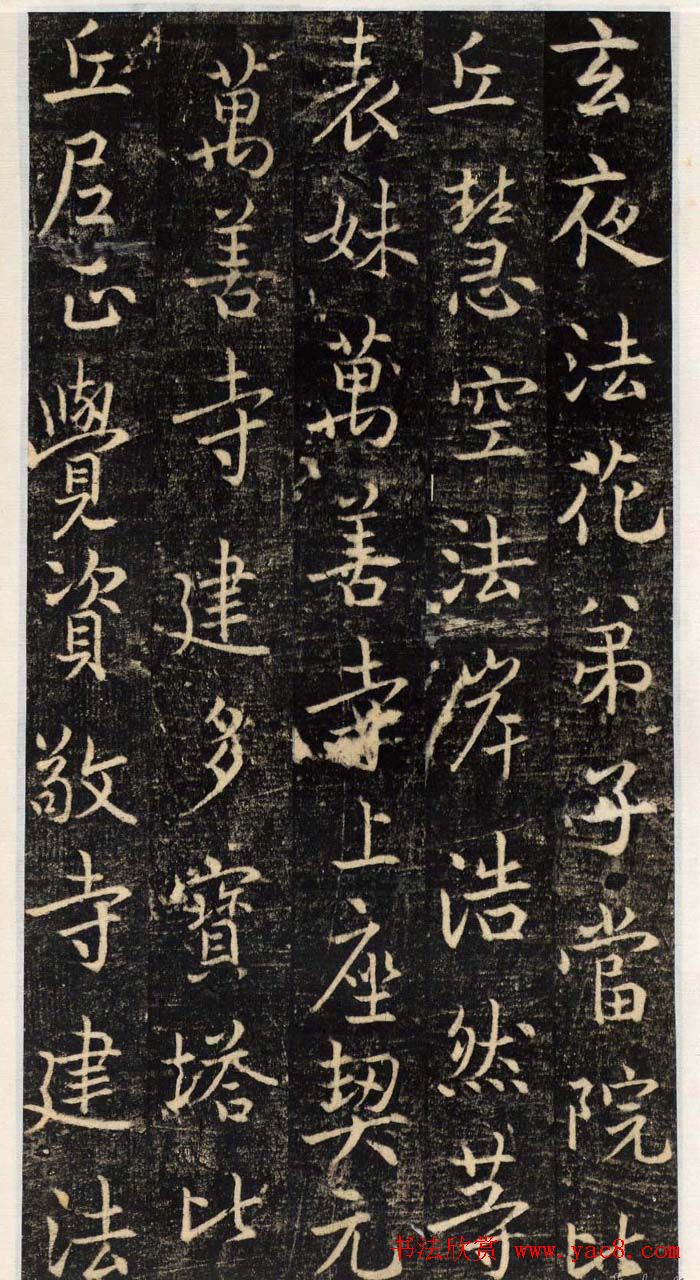 玄夜法花弟子當院比
丘慧空法岸浩然等
表妹萬善寺上座契元
萬善寺建多寶塔比
丘尼正覺資敬寺建法
书法欣赏 www.yac8.com